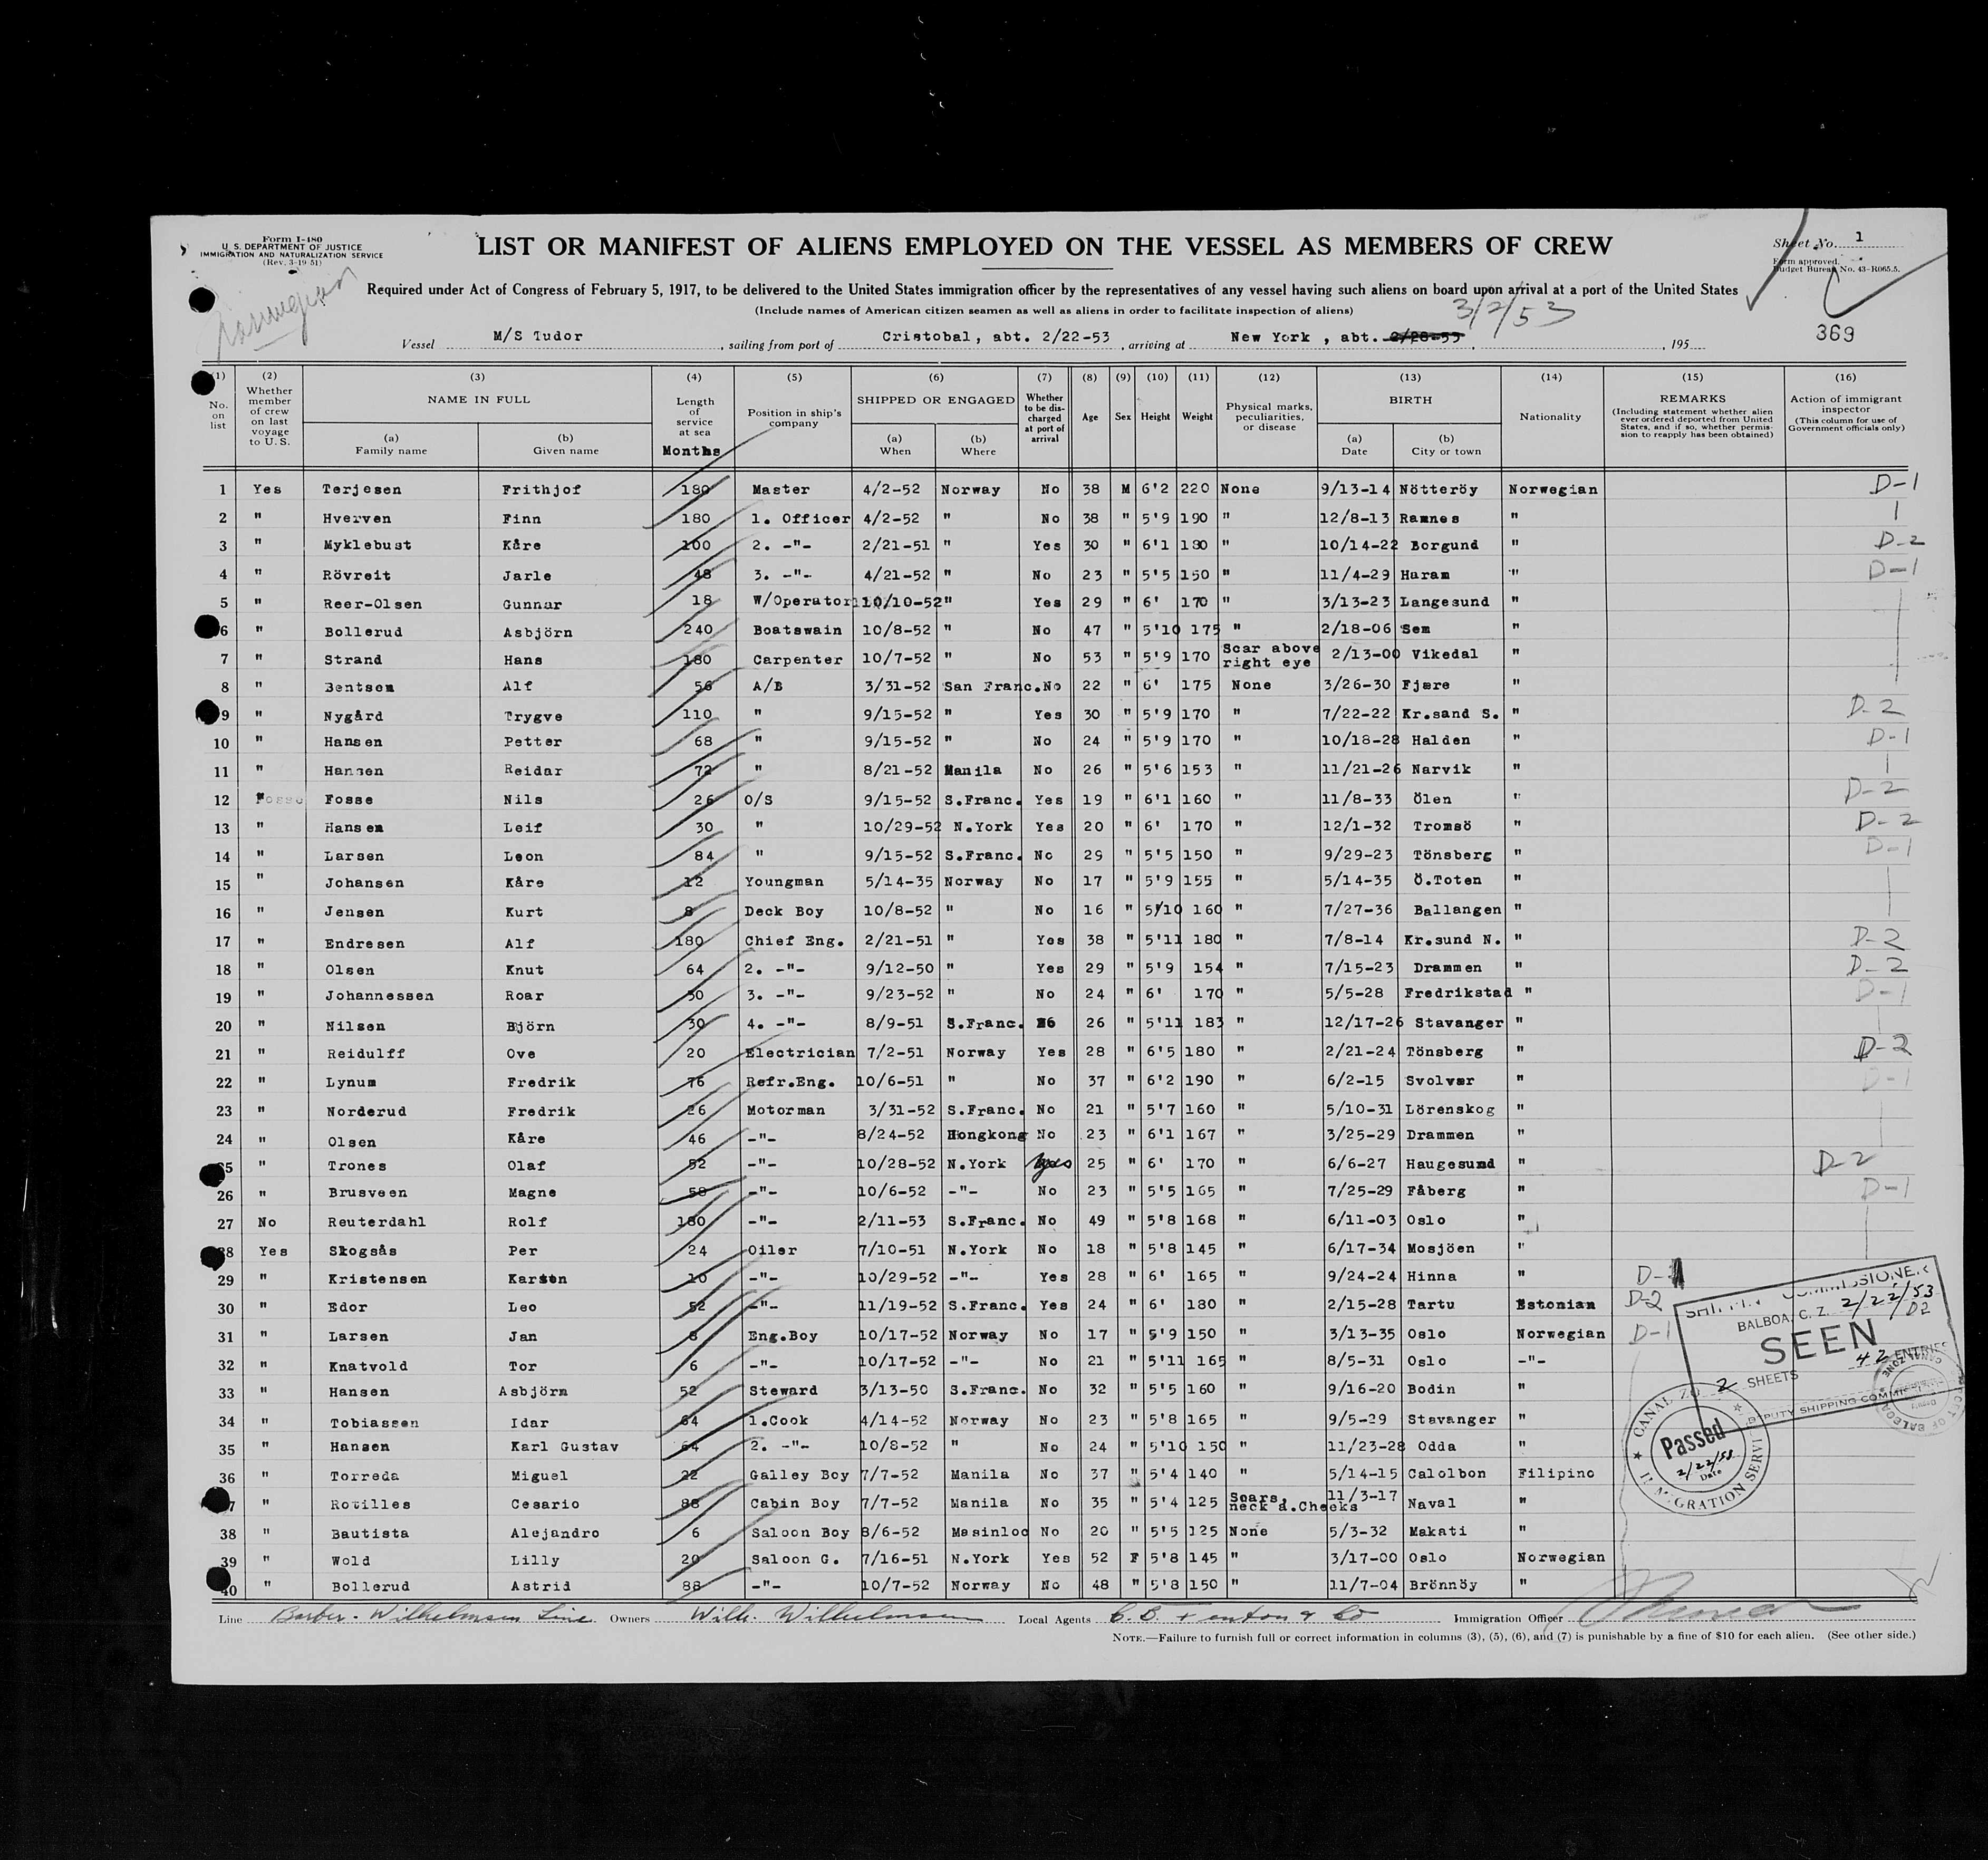 Form I-480
U. S. DEPARTMENT OF JUSTICE
IMMIGRATION AND NATURALIZATION SERVICE
(Rev. 3-19-51)
Norwegian
LIST OR MANIFEST OF ALIENS EMPLOYED ON THE VESSEL AS MEMBERS OF CREW
Sheet No. 1
Form approved.
Budget Bureau No. 43-R065.5.
Required under Act of Congress of February 5, 1917, to be delivered to the United States immigration officer by the representatives of any vessel having such aliens on board upon arrival at a port of the United States
(Include names of American citizen seamen as well as aliens in order to facilitate inspection of aliens)
3/2/53
369
Vessel M/S Tudor, sailing from port of Cristobal, abt. 2/22-53, arriving at New York, abt. 2/28-53, 195
(1) No. on list
(2) Whether member of crew on last voyage to U. S.
(3) NAME IN FULL (a) Family name (b) Given name
(4) Length of service at sea Months
(5) Position in ship's company
(6) SHIPPED OR ENGAGED (a) When (b) Where
(7) Whether to be discharged at port of arrival
(8) Age
(9) Sex
(10) Height
(11) Weight
(12) Physical marks, peculiarities, or disease
(13) BIRTH (a) Date (b) City or town
(14) Nationality
(15) REMARKS (Including statement whether alien ever ordered deported from United States, and if so, whether permission to reapply has been obtained)
(16) Action of immigrant inspector (This column for use of Government officials only)
1 Yes Terjesen Frithjof 180 Master 4/2-52 Norway No 38 M 6'2 220 None 9/13-14 Nötteröy Norwegian D-1
2 " Hverven Finn 180 1. Officer 4/2-52 " No 38 " 5'9 190 " 12/8-13 Ramnes "
3 " Myklebust Kåre 100 2. -"- 2/21-51 " Yes 30 " 6'1 180 " 10/14-22 Borgund " D-2
4 " Rövreit Jarle 48 3. -"- 4/21-52 " No 23 " 5'5 150 " 11/4-29 Haram " D-1
5 " Reer-Olsen Gunnar 18 W/Operator 10/10-52 " Yes 29 " 6' 170 " 3/13-23 Langesund "
6 " Bollerud Asbjörn 240 Boatswain 10/8-52 " No 47 " 5'10 175 " 2/18-06 Sem "
7 " Strand Hans 180 Carpenter 10/7-52 " No 53 " 5'9 170 Scar above right eye 2/13-00 Vikedal "
8 " Bentsen Alf 56 A/B 3/31-52 San Franc. No 22 " 6' 175 None 3/26-30 Fjære "
9 " Nygård Trygve 110 " 9/15-52 " Yes 30 " 5'9 170 " 7/22-22 Kr.sand S. " D-2
10 " Hansen Petter 68 " 9/15-52 " No 24 " 5'9 170 " 10/18-28 Halden " D-1
11 " Hansen Reidar 72 " 8/21-52 Manila No 26 " 5'6 153 " 11/21-26 Narvik "
12 " Fosse Nils 26 O/S 9/15-52 S.Franc. Yes 19 " 6'1 160 " 11/8-33 Ölen " D-2
13 " Hansen Leif 30 " 10/29-52 N.York Yes 20 " 6' 170 " 12/1-32 Tromsö " D-2
14 " Larsen Leon 84 " 9/15-52 S.Franc. No 29 " 5'5 150 " 9/29-23 Tönsberg " D-1
15 " Johansen Kåre 12 Youngman 5/14-35 Norway No 17 " 5'9 155 " 5/14-35 Ö.Toten "
16 " Jensen Kurt 8 Deck Boy 10/8-52 " No 16 " 5/10 160 " 7/27-36 Ballangen "
17 " Endresen Alf 180 Chief Eng. 2/21-51 " Yes 38 " 5'11 180 " 7/8-14 Kr.sund N. " D-2
18 " Olsen Knut 64 2. -"- 9/12-50 " Yes 29 " 5'9 154 " 7/15-23 Drammen " D-2
19 " Johannessen Roar 50 3. -"- 9/23-52 " No 24 " 6' 170 " 5/5-28 Fredrikstad " D-1
20 " Nilsen Björn 30 4. -"- 8/9-51 S.Franc. 26 " 5'11 183 " 12/17-26 Stavanger "
21 " Reidulff Ove 20 Electrician 7/2-51 Norway Yes 28 " 6'5 180 " 2/21-24 Tönsberg " D-2
22 " Lynum Fredrik 76 Refr.Eng. 10/6-51 " No 37 " 6'2 190 " 6/2-15 Svolvær " D-1
23 " Norderud Fredrik 26 Motorman 3/31-52 S.Franc. No 21 " 5'7 160 " 5/10-31 Lörenskog "
24 " Olsen Kåre 46 -"- 8/24-52 Hongkong No 23 " 6'1 167 " 3/25-29 Drammen "
25 " Trones Olaf 52 -"- 10/28-52 N.York Yes 25 " 6' 170 " 6/6-27 Haugesund " D-2
26 " Brusveen Magne 58 -"- 10/6-52 -"- No 23 " 5'5 165 " 7/25-29 Fåberg " D-1
27 No Reuterdahl Rolf 180 -"- 2/11-53 S.Franc. No 49 " 5'8 168 " 6/11-03 Oslo "
28 Yes Skogsås Per 24 Oiler 7/10-51 N.York No 18 " 5'8 145 " 6/17-34 Mosjöen "
29 " Kristensen Karsten 10 -"- 10/29-52 -"- Yes 28 " 6' 165 " 9/24-24 Hinna "
30 " Edor Leo 52 -"- 11/19-52 S.Franc. Yes 24 " 6' 180 " 2/15-28 Tartu Estonian D-2
31 " Larsen Jan 8 Eng.Boy 10/17-52 Norway No 17 " 5'9 150 " 3/13-35 Oslo Norwegian D-1
32 " Knatvold Tor 6 -"- 10/17-52 -"- No 21 " 5'11 165 " 8/5-31 Oslo -"-
33 " Hansen Asbjörn 52 Steward 3/13-50 S.Franc. No 32 " 5'5 160 " 9/16-20 Bodin "
34 " Tobiassen Idar 64 1.Cook 4/14-52 Norway No 23 " 5'8 165 " 9/5-29 Stavanger "
35 " Hansen Karl Gustav 64 2. -"- 10/8-52 " No 24 " 5'10 150 " 11/23-28 Odda "
36 " Torreda Miguel 22 Galley Boy 7/7-52 Manila No 37 " 5'4 140 " 5/14-15 Calolbon Filipino
37 " Rotilles Cesario 88 Cabin Boy 7/7-52 Manila No 35 " 5'4 125 Scars neck a.Cheeks 11/3-17 Naval "
38 " Bautista Alejandro 6 Saloon Boy 8/6-52 Masinloc No 20 " 5'5 125 None 5/3-32 Makati "
39 " Wold Lilly 20 Saloon G. 7/16-51 N.York Yes 52 F 5'8 145 " 3/17-00 Oslo Norwegian
40 " Bollerud Astrid 88 -"- 10/7-52 Norway No 48 " 5'8 150 " 11/7-04 Brönnöy "
SHIPPING COMMISSIONER
BALBOA, C. Z. 2/22/53
D2
SEEN
42 ENTRIES
2 SHEETS
DEPUTY SHIPPING COMMISSIONER
CANAL ZONE
Passed
2/22/53
Date
IMMIGRATION SERVICE
Line Barber-Wilhelmsen Line Owners Wilh. Wilhelmsen Local Agents C. B. Fenton & Co Immigration Officer
NOTE.—Failure to furnish full or correct information in columns (3), (5), (6), and (7) is punishable by a fine of $10 for each alien. (See other side.)